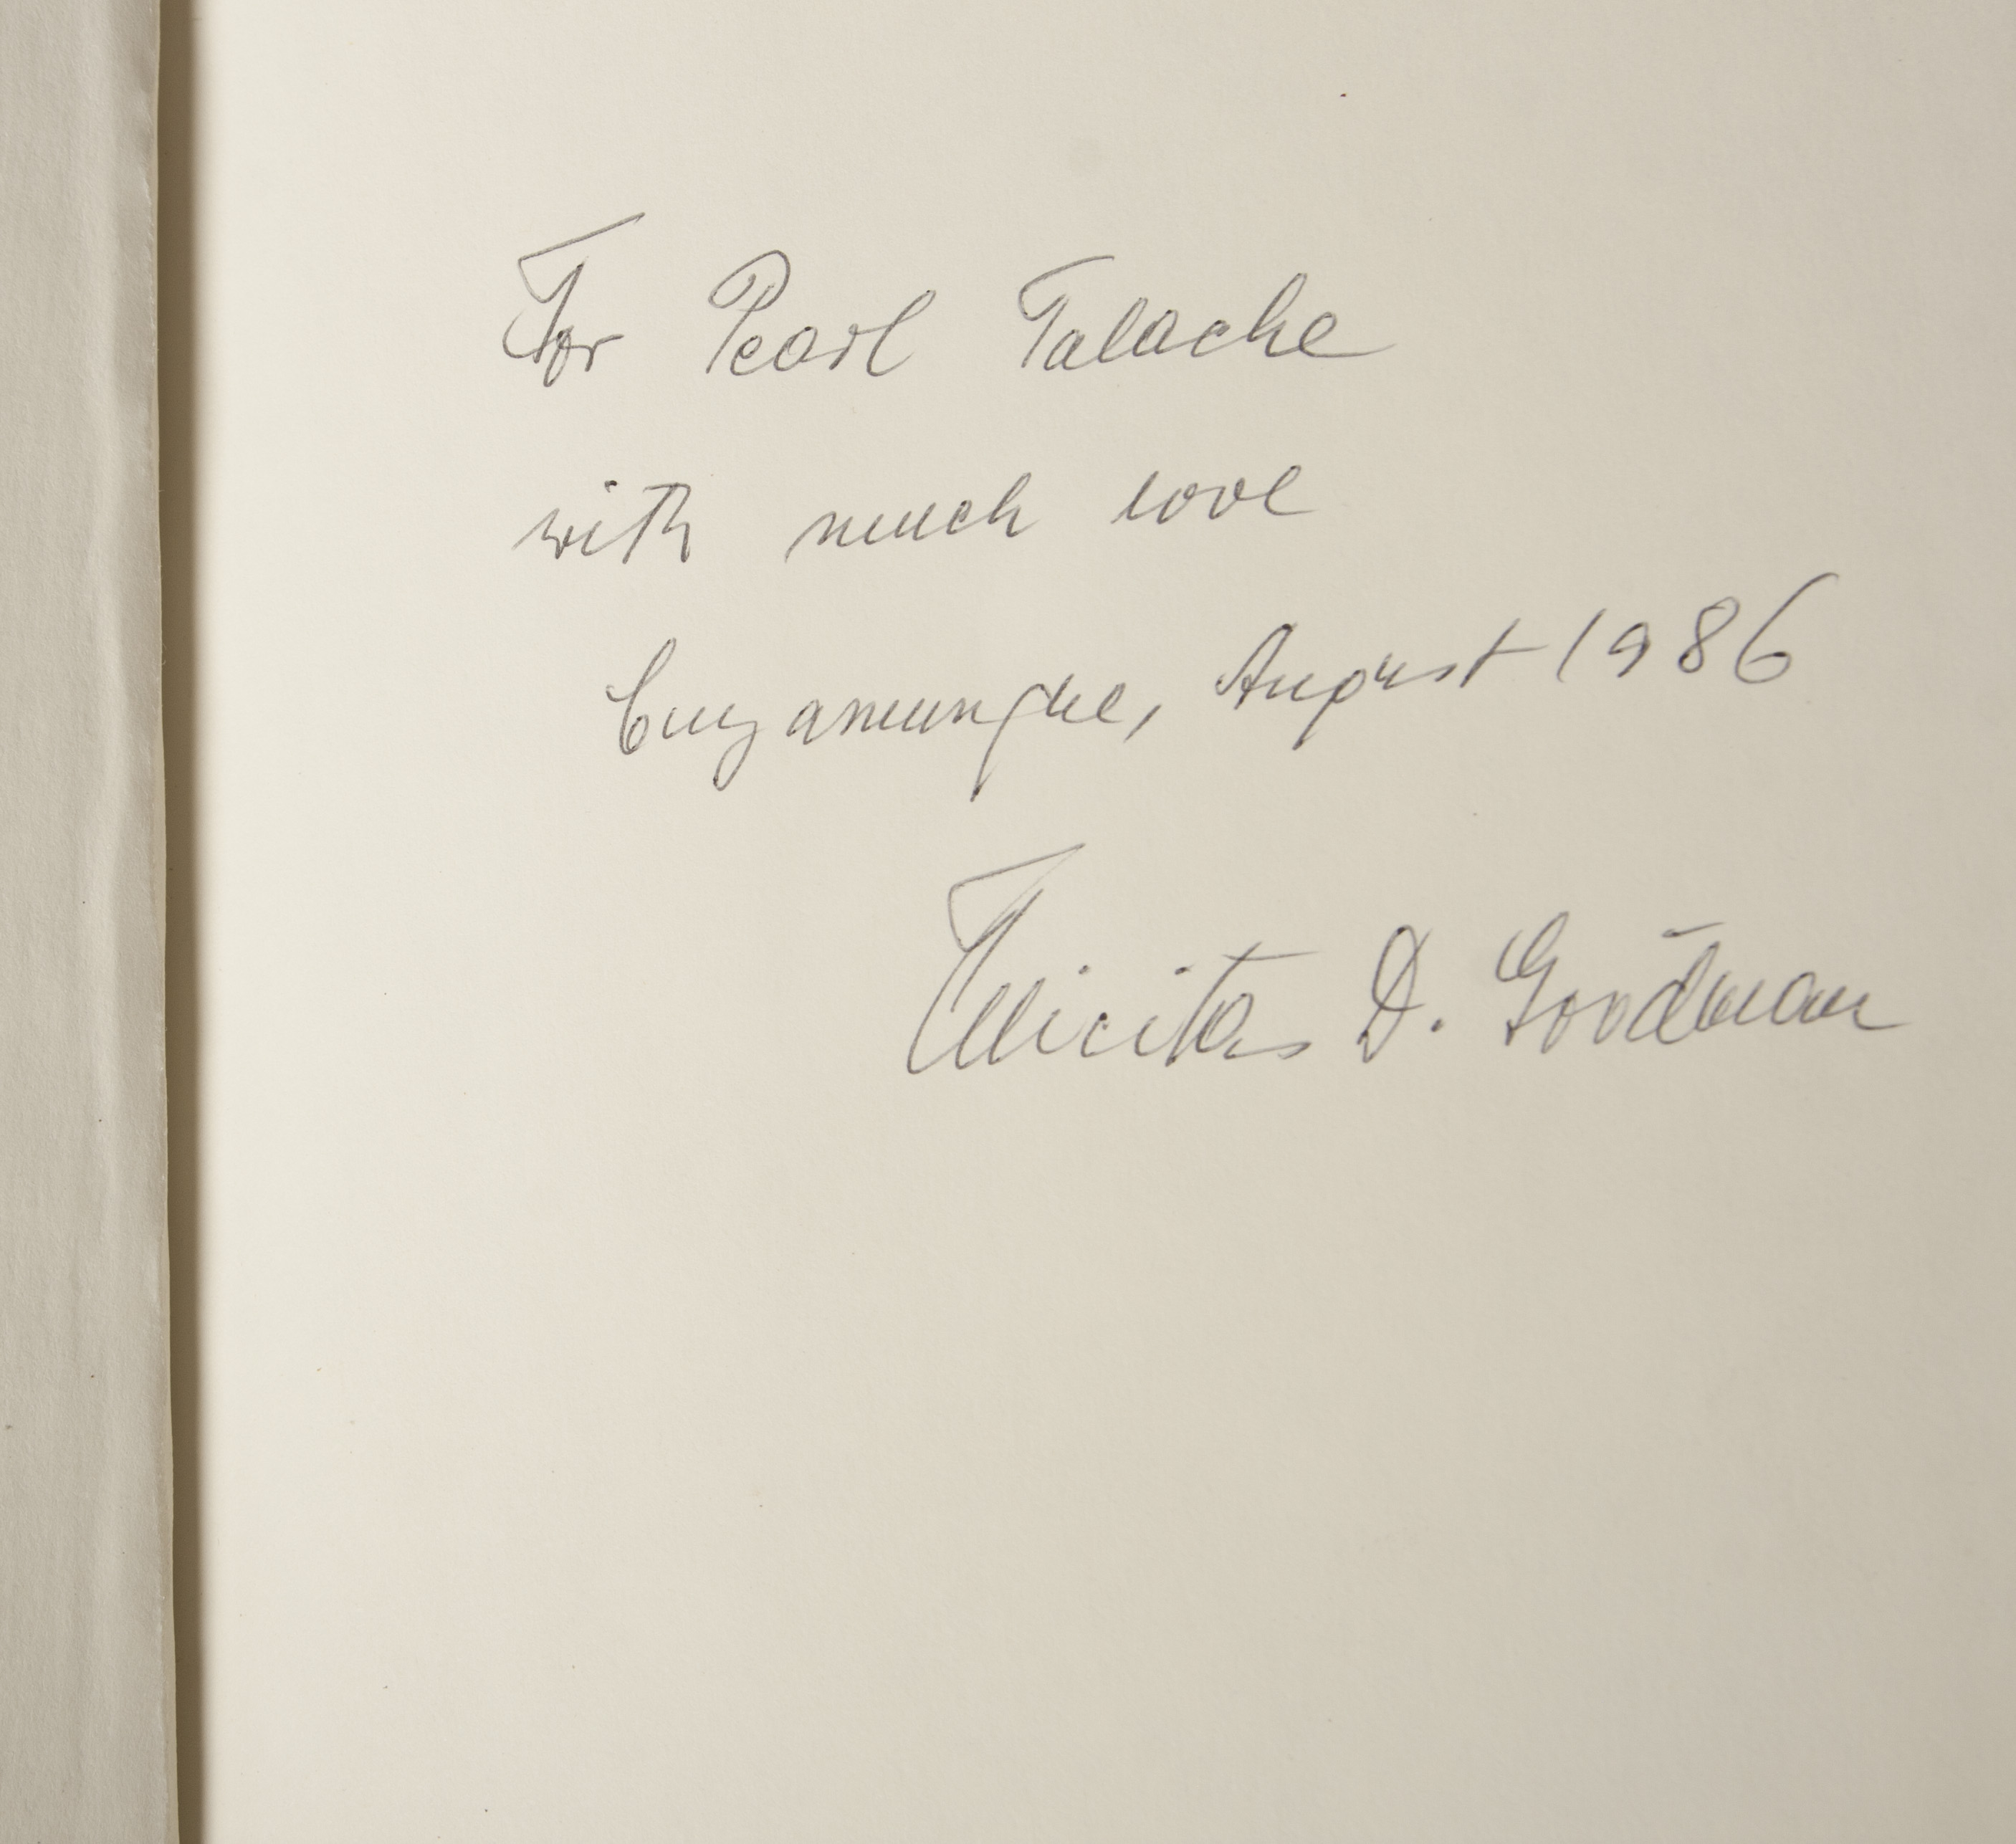 For Pearl Talache
with much love
Cuyamungue, August 1986
Felicitas D. Goodman